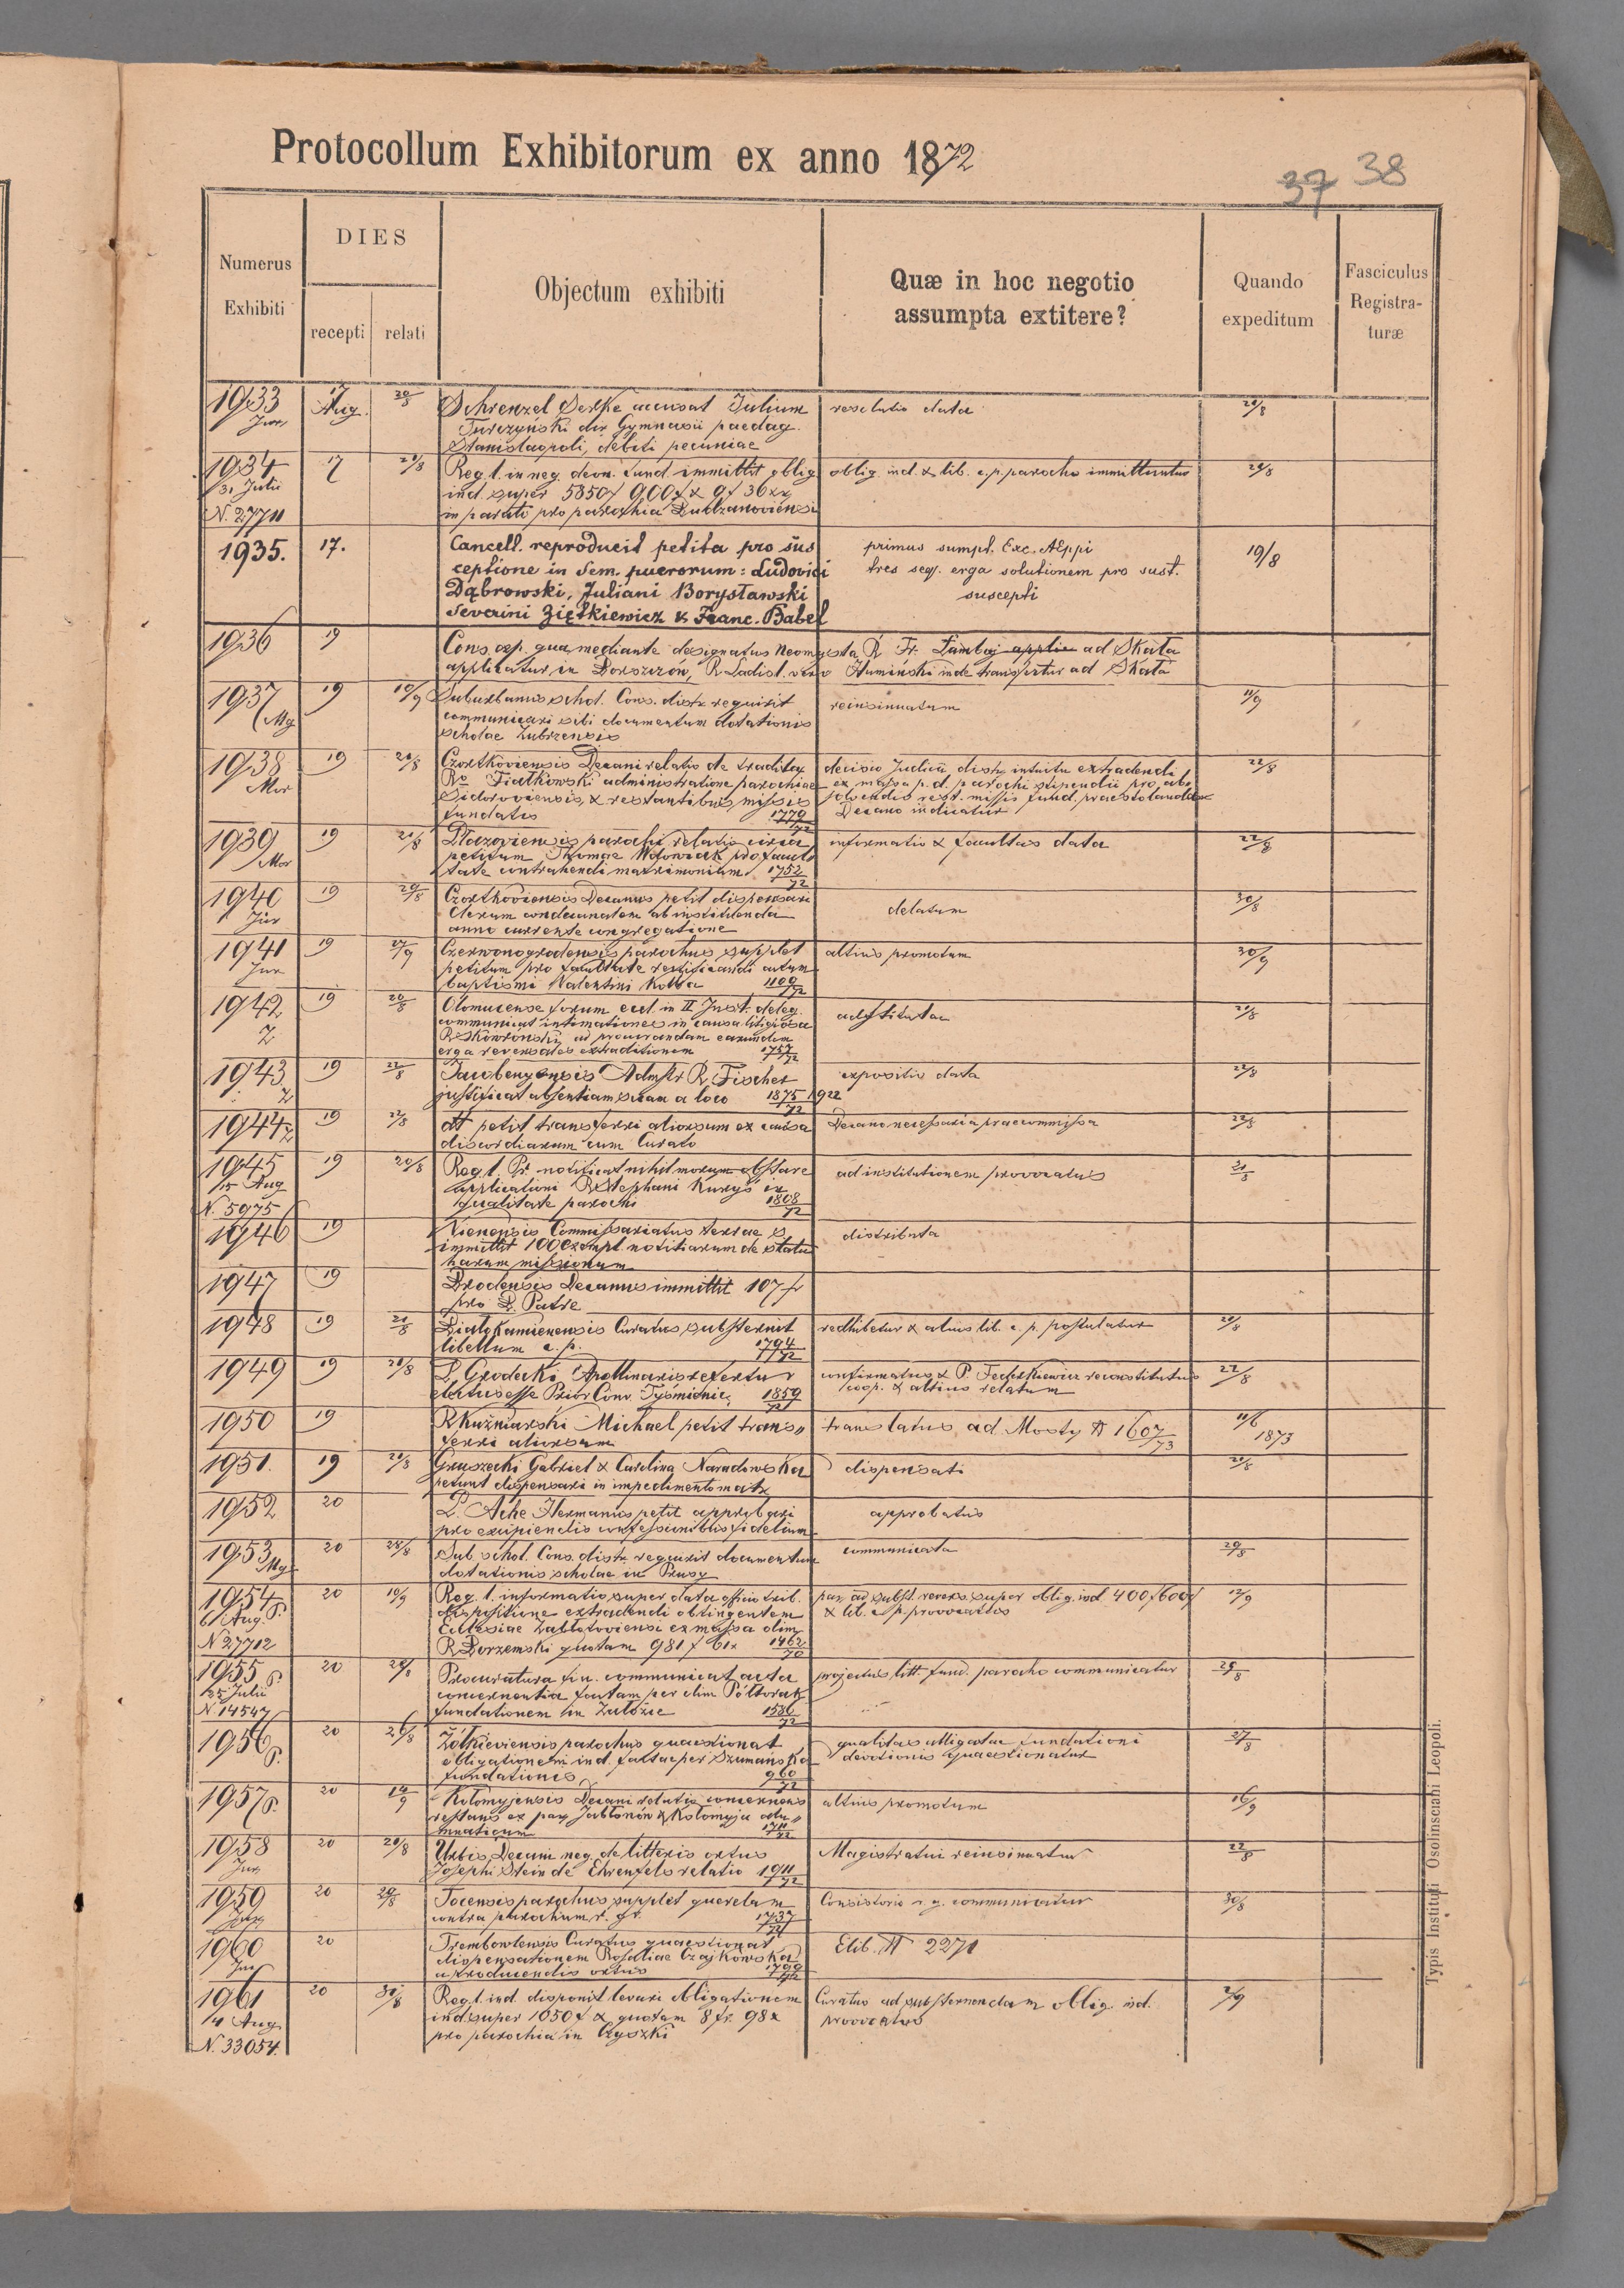 Protocollum Exhibitorum ex anno 1872
37 38
Numerus Exhibiti
DIES
recepti
relati
Objectum exhibiti
Quæ in hoc negotio assumpta extitere?
Quando expeditum
Fasciculus Registra-turæ
1933 17 Aug. 20/8 Schrenzel Serke accusat Julium resolutio data 20/8
Jur. Turczyński dir Gymnasii paedag.
Stanislaopoli, debiti pecuniae
1934 17 20/8 Reg. l. in neg. deon. fund. immittit oblig oblig. ind. & lib. c. p. parocho immittuntur 20/8
31 Julii ind. super 5850 f 900 f & 9 f 36 xr
N. 27711 in parati pro parochia
1935. 17. Cancell. reproducit petita pro sus primus sumpt. Exc. AEppi 19/8
ceptione in Sem. puerorum: Ludovici tres seq. erga solutionem pro sust.
Dąbrowski, Juliani Borysławski suscepti
Severini Ziętkiewicz & Franc. Babel
1936 19 Cons. aep. qua mediante designatus Neomysta R. Fr. Lambaj applica ad Skała
applicatur in Borszczów, R. Ladisl. vero Humiński inde transfertur ad Skała
1937 19 10/9 Suburbanus schol. Cons. distr. requirit reinsinuatum 11/9
Mg communicari sibi documentum dotationis
scholae Zubrzensis
1938 19 20/8 Czortkoviensis Decani relatio de tradita decisio Judicii distr. intuitu extradendi 22/8
Mor Ro Fiałkowski administratione parochiae ex massa p. d. parochi stipendii pro ab
Sidoroviensis, & restantibus missis solvendis rest. missis fund. praestolanda
fundatis 1779/72 Decano indicatur
1939 19 21/8 Płazoviensis parochi relatio circa informatio & facultas data 22/8
Mor petitum Thomae Wołowczak pro facul
tate contrahendi matrimonium 1752/72
1940 19 29/8 Czortkoviensis Decanus petit dispensari delatum 30/8
Jur Clerum condecanatem ab instituenda
anno currente congregatione
1941 19 27/9 Czerwonogrodensis parochus supplet altius promotum 30/9
Jur petitum pro facultate rectificandi actum
baptismi Valentini 1109/72
1942 19 20/8 Olomucense forum eccl. in II Inst. deleg. adstitutae 20/8
Z communicat intimationes in causa litigiosa
R. Skowronski ad procurandam earundem
erga reversales extraditionem 1757/72
1943 19 22/8 Jacobenyensis Admstr R. Fischer expositio data 22/8
Z justificat absentiam suam a loco 1875/72 1922
1944 19 22/8 dt petit transferri aliorsum ex causa Decano necessaria praecommissa 22/8
Z discordiarum cum Curato
1945 19 20/8 Reg. l. Pr. notificat nihil morum obstare ad institutionem provocatus 21/8
15 Aug applicationi R. Stephani Kuryś in
N. 5975 qualitate parochi 1808/72
1946 19 Vienensis Commissariatus terrae s distributa
immittit 100 exempl. notitiarum de statu
harum missionum
1947 19 Brodensis Decanus immittit 107 fr
pro S. Patre
1948 19 20/8 Białykamienensis Curatus substernit redhibetur & alius lib. c. p. postulatur 20/8
libellum c. p. 1794/72
1949 19 20/8 P. Grodecki Apollinaris refertur confirmatus & P. Fechtkiewicz reconstitutus 22/8
electus esse Prior Conv. Tyśmienic. 1859/72 coop. & altius relatum
1950 19 R. Kuźniarski Michael petit trans„ translatus ad Mosty N 1607/73 11/6 1873
ferri aliorsum
1951. 19 20/8 Gruszecki Gabriel & Carolina Narodowska dispensati 20/8
petunt dispensari in impedimento matr
1952 20 P. Ache Hermanus petit approbari approbatus
pro excipiendis confessionibus fidelium
1953 20 28/8 Sub schol. Cons. distr. requirit documentum communicata 29/8
Mg dotationis scholae in Prusy
1954 20 10/9 Reg. l. informatio super data officio trib. par. ad subst. revers. super oblig. ind. 400 f 600 f 12/9
6 Aug. P. dispositione extradendi obtingentem & lib. c. p. provocatus
N 27712 Ecclesiae Zabłotoviensi ex massa olim
R. Borzemski quotam 981 f 61x 1462/70
1955 P. 20 20/8 Procuratura fin. communicat acta projectus litt. fund. parocho communicatur 25/8
25 Julii concernentia factam per olim Półtorak
N 14547 fundationem in Załoźce 1586/72
1956 P. 20 26/8 Żółkieviensis parochus quaestionat qualitas alligatae fundationi 27/8
obligationem ind. factae per Szumańska devotionis quaestionatur
fundationis 960/72
1957 P. 20 14/9 Kołomyjensis Decani relatio concernens altius promotum 16/9
restans ex par. Jabłonów & Kołomyja alu„
mnaticum 1711/72
1958 20 20/8 Urbis Decani neg. de litteris ortus Magistratui reinsinuatur 22/8
Jur Josephi Stein de Ehrenfels relatio 1911/72
1959 20 29/8 Tocensis parochus supplet querelam Consistorio r. g. communicatur 30/8
Jur contra parochum r. gr. 1737/72
1960 20 Trembowlensis Curatus quaestionat Elib. N 2271
Jur dispensationem Rosaliae Czajkowska
a producendis ortus
1961 20 31/8 Reg. l. ind. disponit levari obligationem Curatus ad substernendam oblig. ind. 2/9
14 Aug. ind. super 1050 f & quotam 8 fr. 98x provocatus
N. 33054. pro parochia in Czyszki
Typis Instituti Ossolinsciani Leopoli.